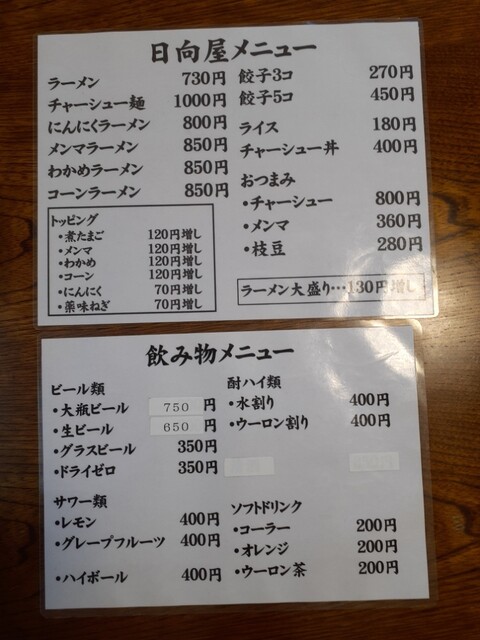 日向屋メニュー
ラーメン 730円
チャーシュー麺 1000円
にんにくラーメン 800円
メンマラーメン 850円
わかめラーメン 850円
コーンラーメン 850円
トッピング
・煮たまご 120円増し
・メンマ 120円増し
・わかめ 120円増し
・コーン 120円増し
・にんにく 70円増し
・薬味ねぎ 70円増し
餃子3コ 270円
餃子5コ 450円
ライス 180円
チャーシュー丼 400円
おつまみ
・チャーシュー 800円
・メンマ 360円
・枝豆 280円
ラーメン大盛り…130円増し
飲み物メニュー
ビール類
・大瓶ビール 750円
・生ビール 650円
・グラスビール 350円
・ドライゼロ 350円
サワー類
・レモン 400円
・グレープフルーツ 400円
・ハイボール 400円
酎ハイ類
・水割り 400円
・ウーロン割り 400円
ソフトドリンク
・コーラー 200円
・オレンジ 200円
・ウーロン茶 200円